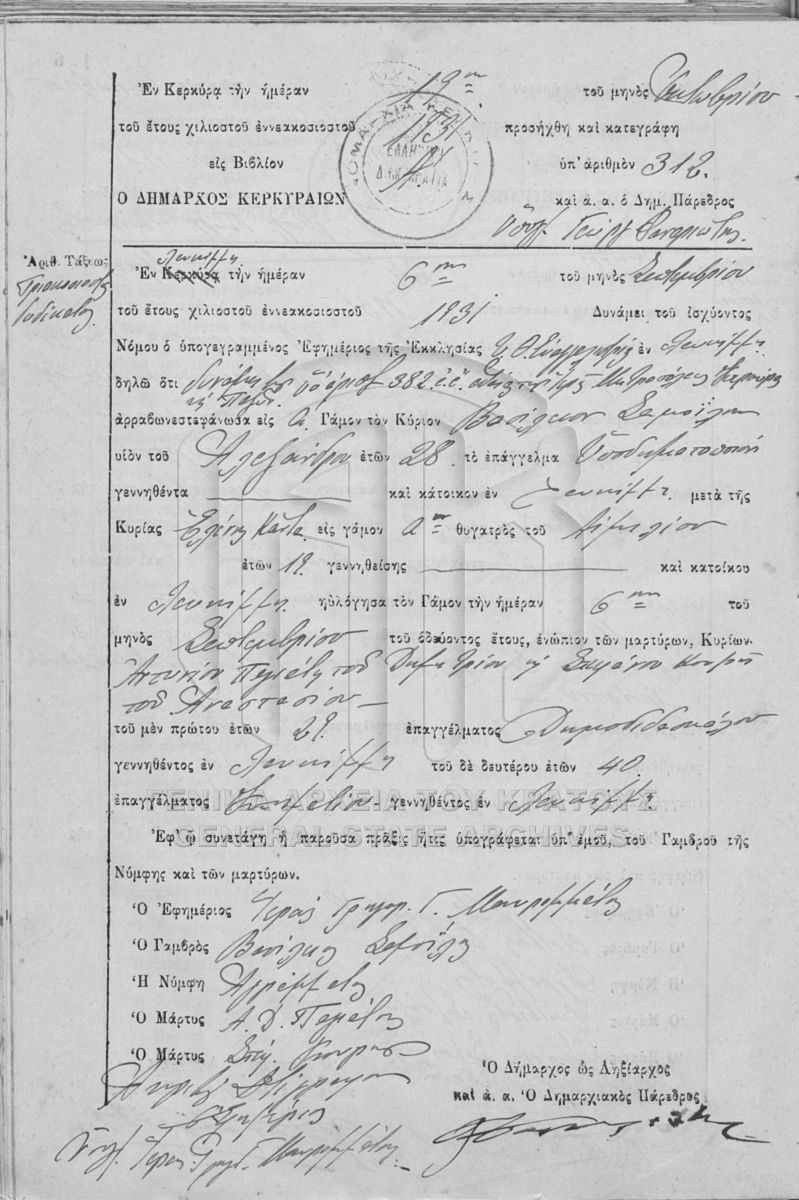 Ἐν Κερκύρᾳ τὴν ἡμέραν 19ην τοῦ μηνὸς Ὀκτωβρίου
τοῦ ἔτους χιλιοστοῦ ἐννεακοσιοστοῦ 1931 προσήχθη καὶ κατεγράφη
εἰς Βιβλίον ὑπ' ἀριθμὸν 312.
Ο ΔΗΜΑΡΧΟΣ ΚΕΡΚΥΡΑΙΩΝ καὶ ἀ. α. ὁ Δημ. Πάρεδρος
Ἀριθ. Τάξεως
Τριακοσιοστὴ
Δωδεκάτη
Λευκίμμῃ
Ἐν Κερκύρᾳ τὴν ἡμέραν 6ην τοῦ μηνὸς Σεπτεμβρίου
τοῦ ἔτους χιλιοστοῦ ἐννεακοσιοστοῦ 1931 Δυνάμει τοῦ ἰσχύοντος
Νόμου ὁ ὑπογεγραμμένος Ἐφημέριος τῆς Ἐκκλησίας ἐν Λευκίμμῃ
δηλῶ ὅτι δυνάμει τῆς ὑπ' ἀριθ 382 Μητροπόλεως Κερκύρας
ἀρραβωνεστεφάνωσα εἰς α. Γάμον τὸν Κύριον Βασίλειον Σαμοΐλην
υἱὸν τοῦ Ἀλεξάνδρου ἐτῶν 28. τὸ ἐπάγγελμα Ὑποδηματοποιὸν
γεννηθέντα καὶ κάτοικον ἐν Λευκίμμῃ. μετὰ τῆς
Κυρίας Ἑλένης Κάντα εἰς γάμον αον θυγατρὸς τοῦ Αἰμιλίου
ἐτῶν 19 γεννηθείσης καὶ κατοίκου
ἐν Λευκίμμῃ. ηὐλόγησα τὸν Γάμον τὴν ἡμέραν 6ην τοῦ
μηνὸς Σεπτεμβρίου τοῦ ὁδεύοντος ἔτους, ἐνώπιον τῶν μαρτύρων, Κυρίων.
Ἀντωνίου τοῦ Δημητρίου
τοῦ Ἀναστασίου
τοῦ μὲν πρώτου ἐτῶν 29. ἐπαγγέλματος Δημοδιδασκάλου
γεννηθέντος ἐν Λευκίμμῃ τοῦ δὲ δευτέρου ἐτῶν 40.
ἐπαγγέλματος Κτηματίου γεννηθέντος ἐν Λευκίμμῃ
ΓΕΝΙΚΑ ΑΡΧΕΙΑ ΤΟΥ ΚΡΑΤΟΥΣ
GENERAL STATE ARCHIVES
Ἐφ' ᾧ συνετάγη ἡ παροῦσα πρᾶξις ἥτις ὑπογράφεται ὑπ' ἐμοῦ, τοῦ Γαμβροῦ τῆς
Νύμφης καὶ τῶν μαρτύρων.
Ὁ Ἐφημέριος Ἱερεὺς Γρηγόρ. Γ. Μαυρομμάτης
Ὁ Γαμβρὸς Βασίλειος Σαμοΐλης
Ἡ Νύμφη Ἀγράμματος
Ὁ Μάρτυς Α. Δ.
Ὁ Μάρτυς
Ὁ Δήμαρχος ὡς Ληξίαρχος
καὶ ἀ. α. Ὁ Δημαρχιακὸς Πάρεδρος
Ἀκριβὲς Ἀντίγραφον